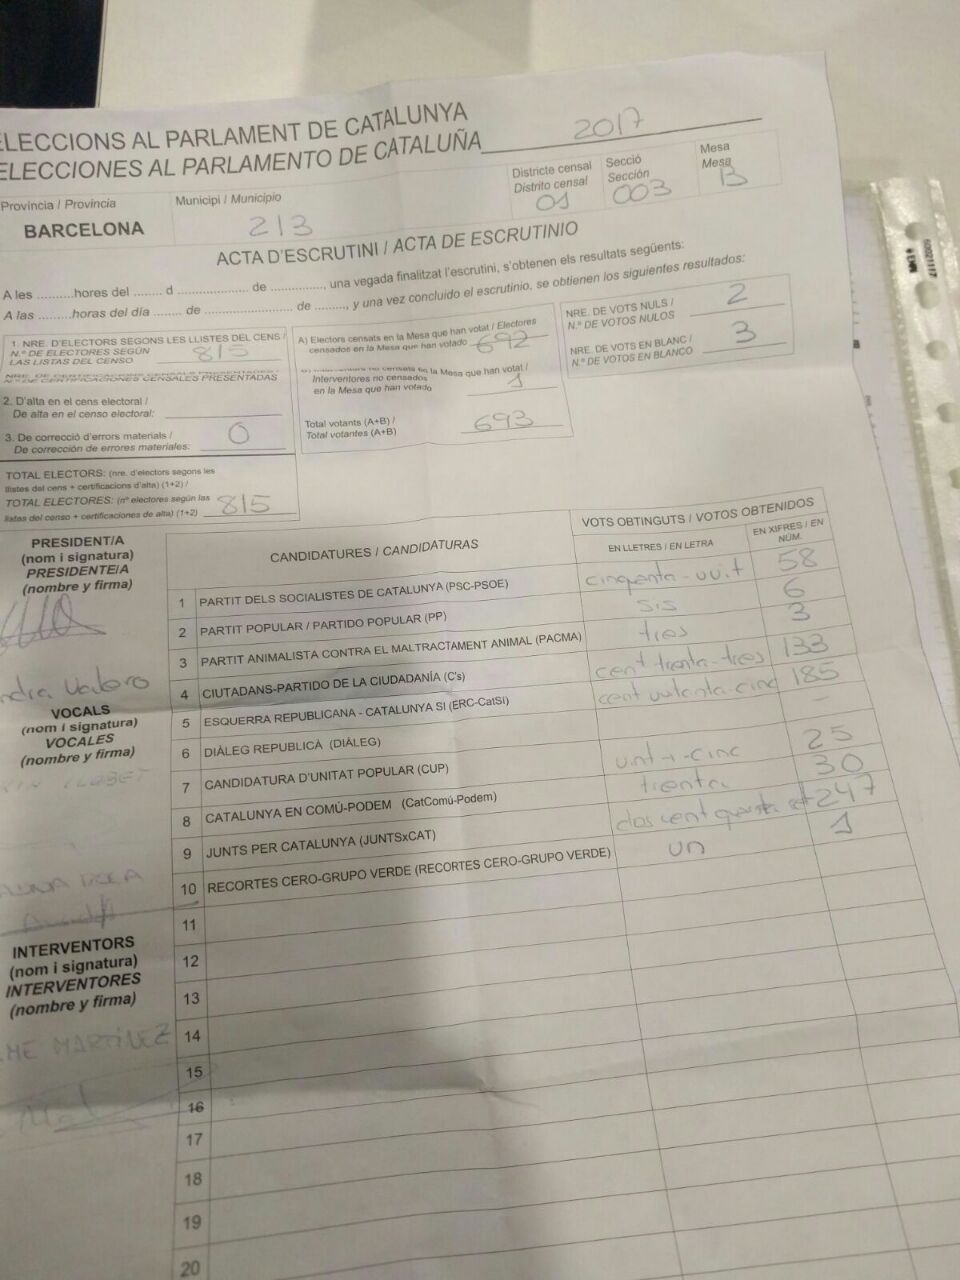 ELECCIONS AL PARLAMENT DE CATALUNYA
ELECCIONES AL PARLAMENTO DE CATALUÑA 2017
Província / Provincia
BARCELONA
Municipi / Municipio
213
Districte censal
Distrito censal
01
Secció
Sección
003
Mesa
Mesa
B
ACTA D'ESCRUTINI / ACTA DE ESCRUTINIO
A les ..........hores del ........ d .................... de ..............., una vegada finalitzat l'escrutini, s'obtenen els resultats següents:
A las .........horas del día ....... de ........................... de ........, y una vez concluido el escrutinio, se obtienen los siguientes resultados:
1. NRE. D'ELECTORS SEGONS LES LLISTES DEL CENS /
N.º DE ELECTORES SEGÚN
LAS LISTAS DEL CENSO
815
NRE. DE CERTIFICACIONS CENSALS PRESENTADES /
N.º DE CERTIFICACIONES CENSALES PRESENTADAS
2. D'alta en el cens electoral /
De alta en el censo electoral:
3. De correcció d'errors materials /
De corrección de errores materiales: 0
TOTAL ELECTORS: (nre. d'electors segons les
llistes del cens + certificacions d'alta) (1+2) /
TOTAL ELECTORES: (nº electores según las
listas del censo + certificaciones de alta) (1+2) 815
A) Electors censats en la Mesa que han votat / Electores
censados en la Mesa que han votado 692
en la Mesa que han votat /
Interventores no censados
en la Mesa que han votado 1
Total votants (A+B) /
Total votantes (A+B) 693
NRE. DE VOTS NULS /
N.º DE VOTOS NULOS 2
NRE. DE VOTS EN BLANC /
N.º DE VOTOS EN BLANCO 3
PRESIDENT/A
(nom i signatura)
PRESIDENTE/A
(nombre y firma)
ndra Valero
VOCALS
(nom i signatura)
VOCALES
(nombre y firma)
INTERVENTORS
(nom i signatura)
INTERVENTORES
(nombre y firma)
ME MARTÍNEZ
CANDIDATURES / CANDIDATURAS
VOTS OBTINGUTS / VOTOS OBTENIDOS
EN LLETRES / EN LETRA
EN XIFRES / EN
NÚM.
1 PARTIT DELS SOCIALISTES DE CATALUNYA (PSC-PSOE) cinquanta-vuit 58
2 PARTIT POPULAR / PARTIDO POPULAR (PP) sis 6
3 PARTIT ANIMALISTA CONTRA EL MALTRACTAMENT ANIMAL (PACMA) tres 3
4 CIUTADANS-PARTIDO DE LA CIUDADANÍA (C's) cent trenta-tres 133
5 ESQUERRA REPUBLICANA - CATALUNYA SI (ERC-CatSI) cent vuitanta-cinc 185
6 DIÀLEG REPUBLICÀ (DIÀLEG)
7 CANDIDATURA D'UNITAT POPULAR (CUP) vint-i-cinc 25
8 CATALUNYA EN COMÚ-PODEM (CatComú-Podem) trenta 30
9 JUNTS PER CATALUNYA (JUNTSxCAT) dos cent quaranta set 247
10 RECORTES CERO-GRUPO VERDE (RECORTES CERO-GRUPO VERDE) un 1
11
12
13
14
15
16
17
18
19
20